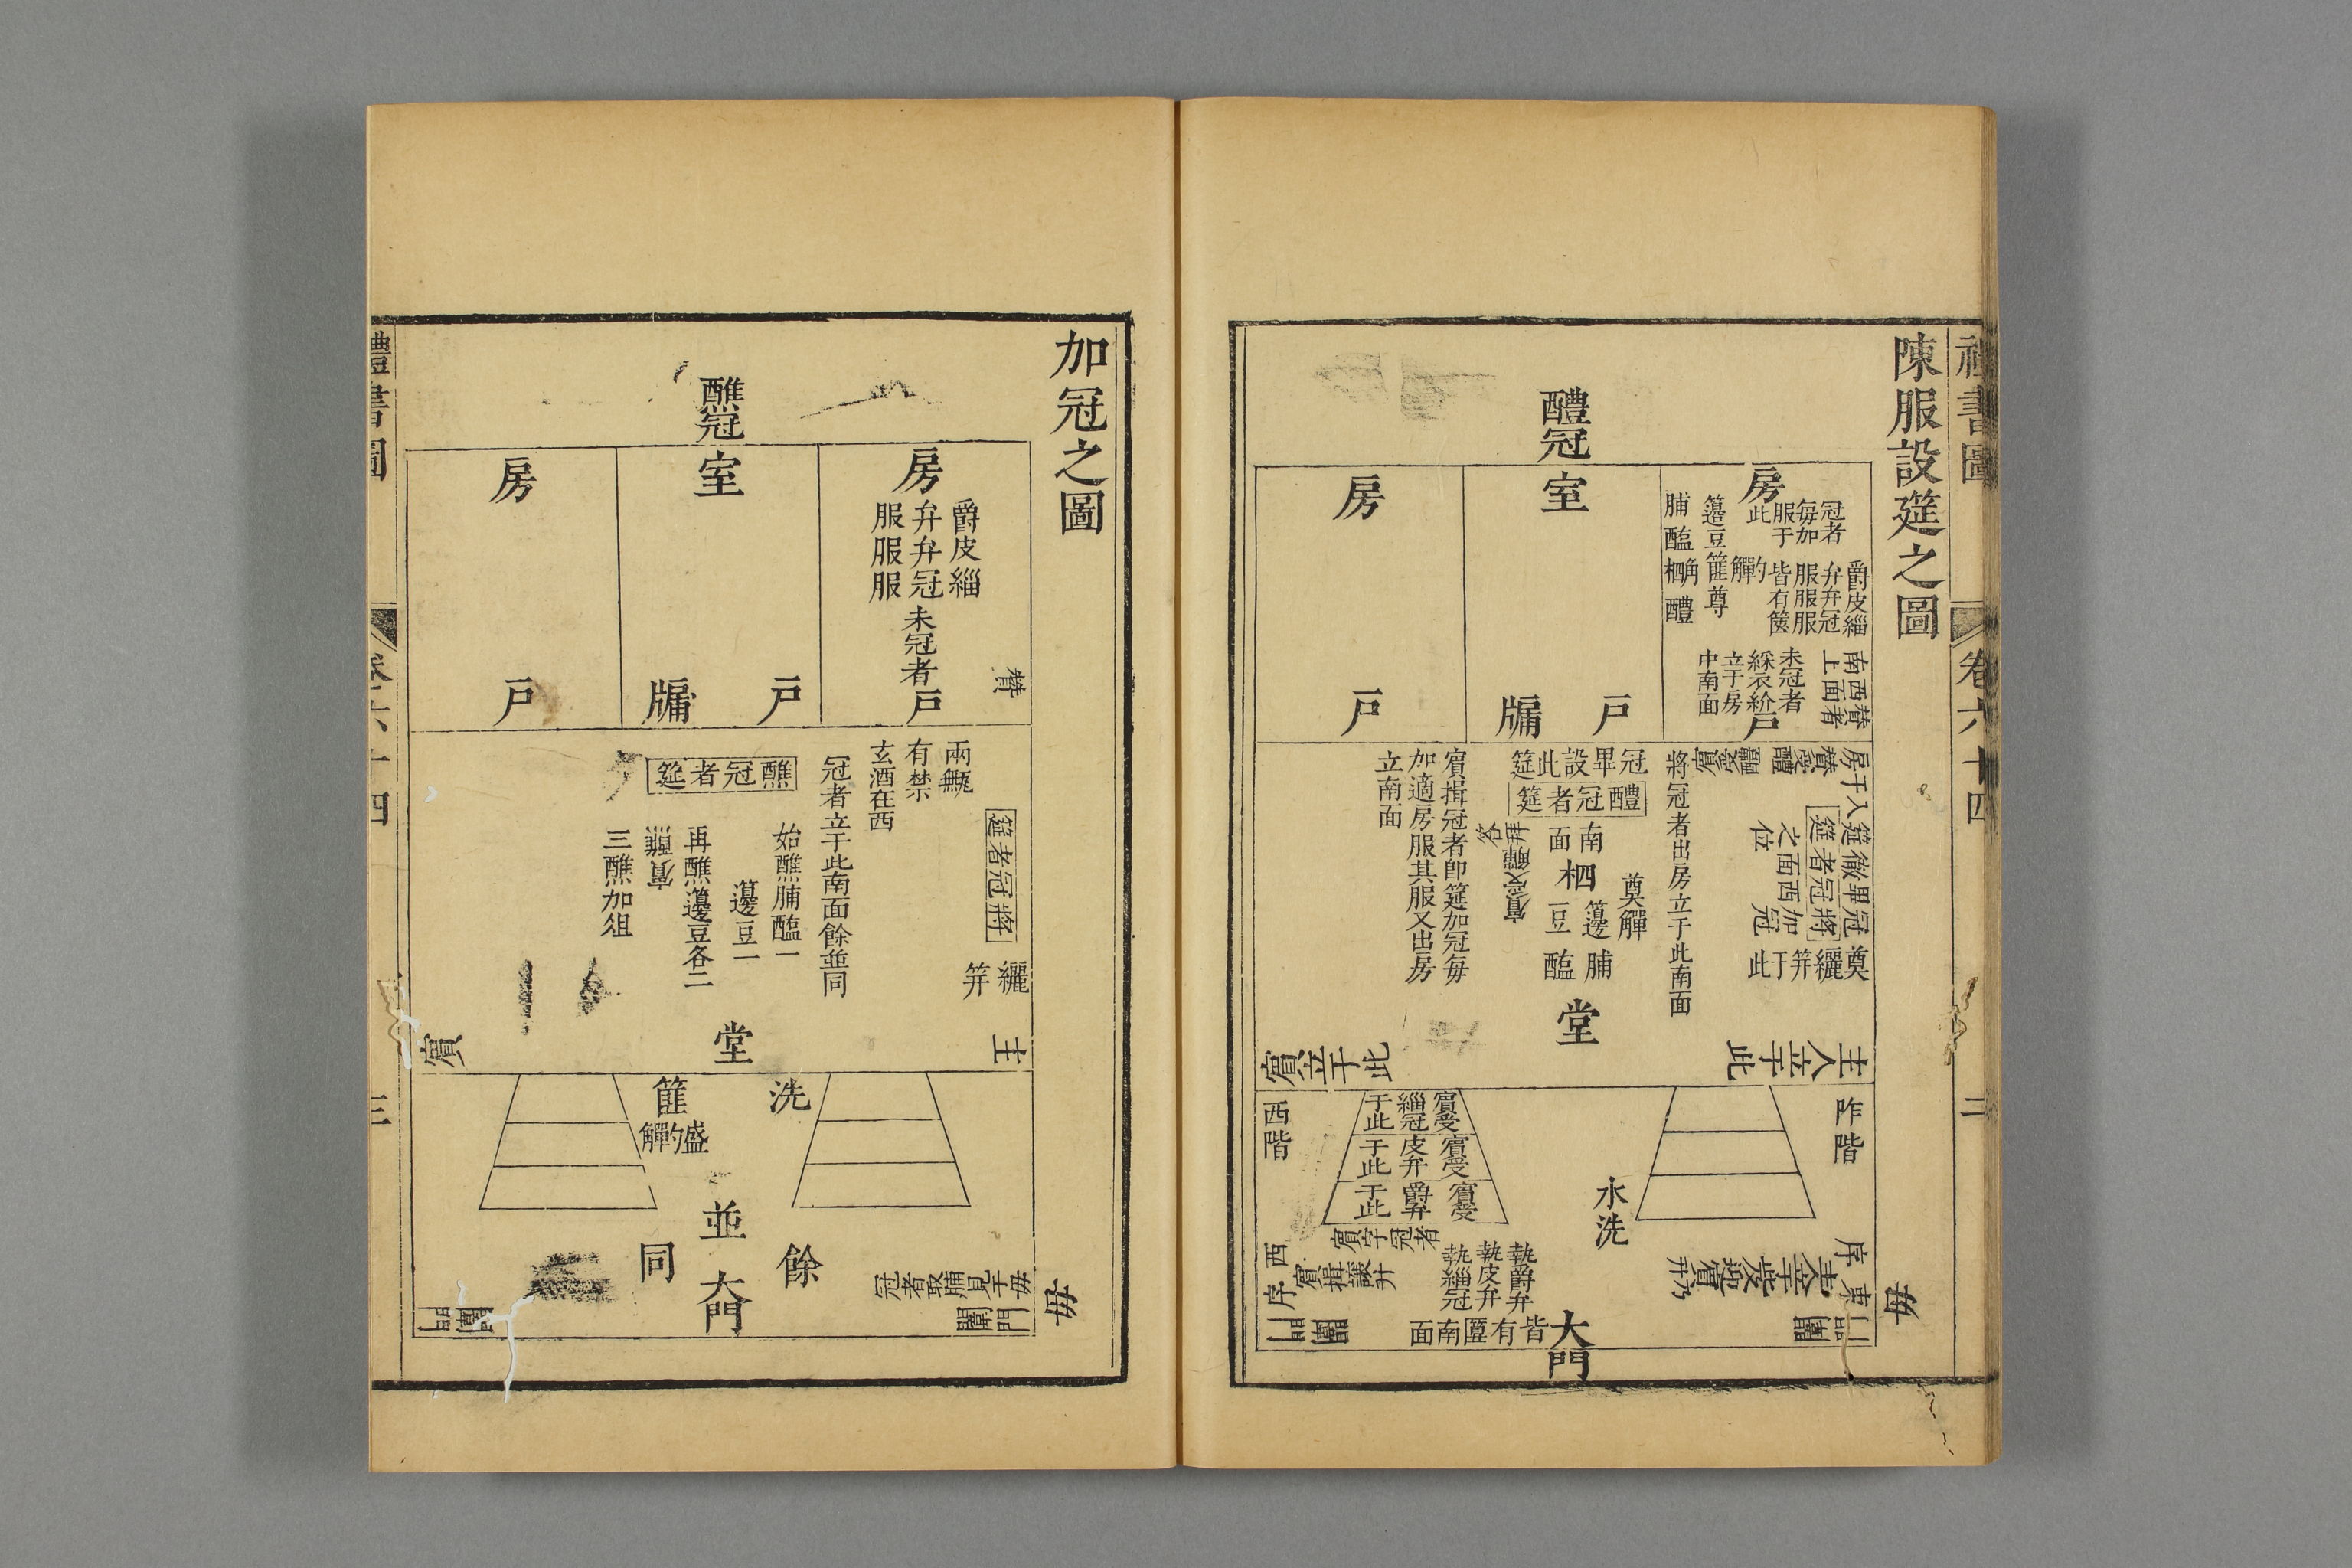 陳服設筵之圖
醴冠
房
室
房
冠者
每加
服于
此
爵皮緇
弁弁冠
服服服
皆有篋
籩豆篚尊
脯醢
醴
南西贊
上面者
未冠者
綵衣紒
立于房
中南面
戶
戶
牖
戶
將冠者出房立于此南面
冠畢設此筵
醴冠者筵
南面
柶
奠觶
籩脯
豆醢
賓揖冠者卽筵加冠每
加適房服其服又出房
立南面
將冠者筵
加冠
西面
之位
冠畢徹筵入于房
奠纚笄于此
堂
主人立于此
賓立于此
阼階
西階
賓受緇冠于此
賓受皮弁于此
賓受爵弁于此
水洗
賓字冠者
執爵弁
執皮弁
執緇冠
皆有匴南面
東序
西序
大門
母
卷六十四
二
加冠之圖
醮冠
房
室
房
爵皮緇
弁弁冠
服服服
未冠者
贊
戶
戶
牖
戶
兩甒
有禁
玄酒在西
將冠者筵
纚
笄
冠者立于此南面餘並同
醮冠者筵
始醮脯醢一
籩豆一
再醮籩豆各二
賓醮
三醮加俎
堂
主
賓
洗
篚
盛勺觶
餘
並
同
大門
冠者取脯見于母
闈門
闈門
母
禮書圖
三